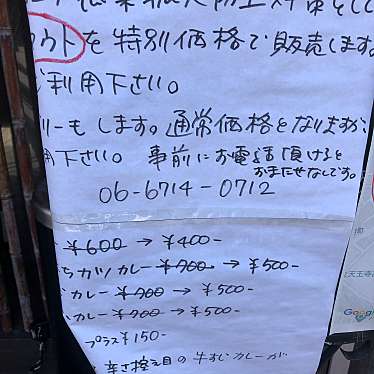 ウトを特別価格で販売します
ご利用下さい。
リーもします。通常価格となりますが
用下さい。事前にお電話頂けると
おまたせなしです。
06-6714-0712
¥600→¥400-
ちカツカレー¥700→¥500-
カレー¥900→¥500-
カレー¥900→¥500-
プラス¥150-
辛さ控え目の牛すじカレーが
天王寺
Google